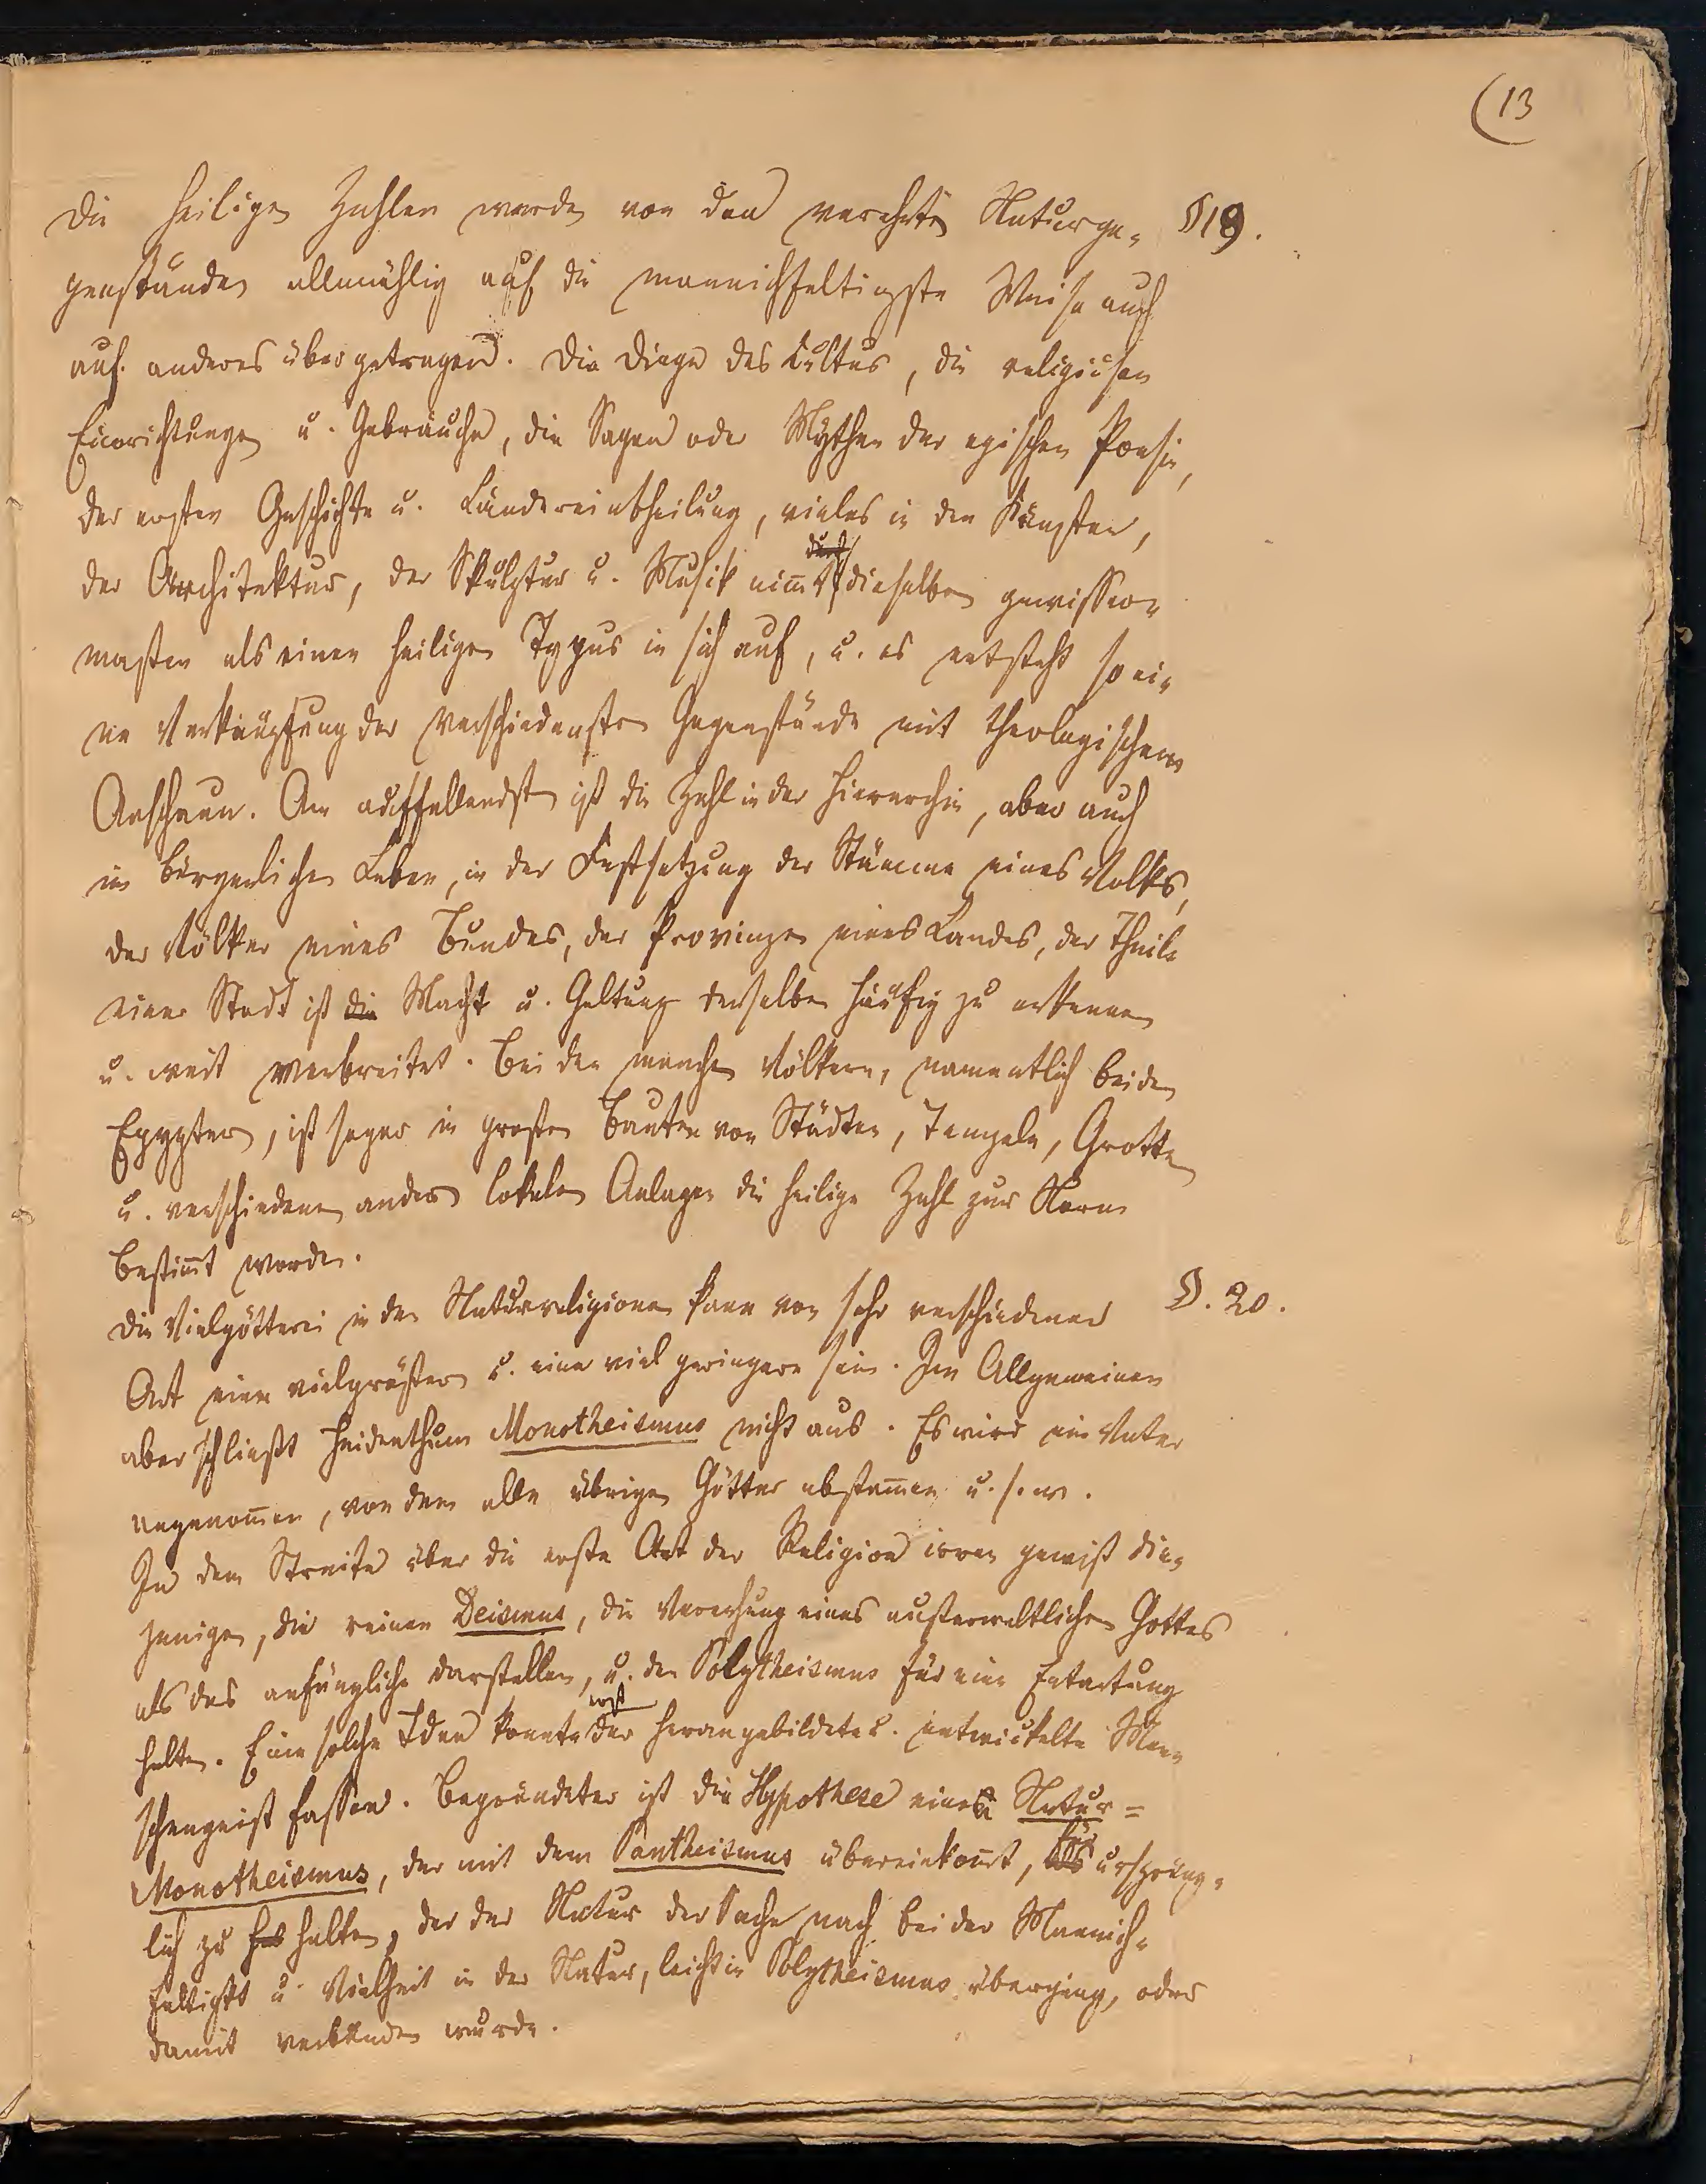 (13
Die heiligen Zahlen werden von den verehrten Naturge- §19.
genständen allmählig auf die mannichfaltigste Weise auch
auf anderes übergetragen. Die Dinge des Kultus, die religiösen
Einrichtungen u. Gebräuche, die Sagen oder Mythen der epischen Poesie,
der ersten Geschichte u. Ländereintheilung, vieles in den Künsten,
der Architektur, der Skulptur u. Musik nim̄t dieselben gewisser-
maßen als einen heiligen Typus in sich auf, u. es entsteht so ei-
ne Verknüpfung der verschiedensten Gegenstände mit theologischem
Anschaun. Am auffallendsten ist die Zahl in der Hierarchie, aber auch
im bürgerlichen Leben, in der Festsetzung der Stämme eines Volks,
der Völker eines Bundes, der Provinzen eines Landes, der Theile
einer Stadt ist die Macht u. Geltung derselben häufig zu erkennen
u. weit verbreitet. Bei den manchen Völkern, namentlich bei den
Egypter, ist sogar in großen Bauten von Städten, Tempeln, Grotten
u. verschiedenen andern lokalen Anlagen die heilige Zahl zur Norm
bestim̄t worden.
Die Vielgötterei in den Naturreligionen kann von sehr verschiedener §. 20.
Art eine vielgrößere u. eine viel geringere sein. Im Allgemeinen
aber schließt Heidenthum Monotheismus nicht aus. Es wird ein Vater
angenom̄en, von dem alle übrigen Götter abstam̄en u. s. w.
In dem Streite über die erste Art der Religion irren gewiß die-
jenigen, die reinen Deismus, die Verehrung eines außerweltlichen Gottes
als das anfängliche darstellen, u. den Polytheismus für eine Entartung
erst
halten. Eine solche Idee konnte der herangebildete u. entwickelte Men-
schengeist fassen. Begründeter ist die Hypothese eines Natur=
Monotheismus, der mit dem Pantheismus übereinkom̄t, für ursprüng-
lich zu halten, der der Natur der Sache nach bei der Mannich-
faltigkt u. Vielheit in der Natur, leicht in Polytheismus überging, oder
damit verbunden wurde.